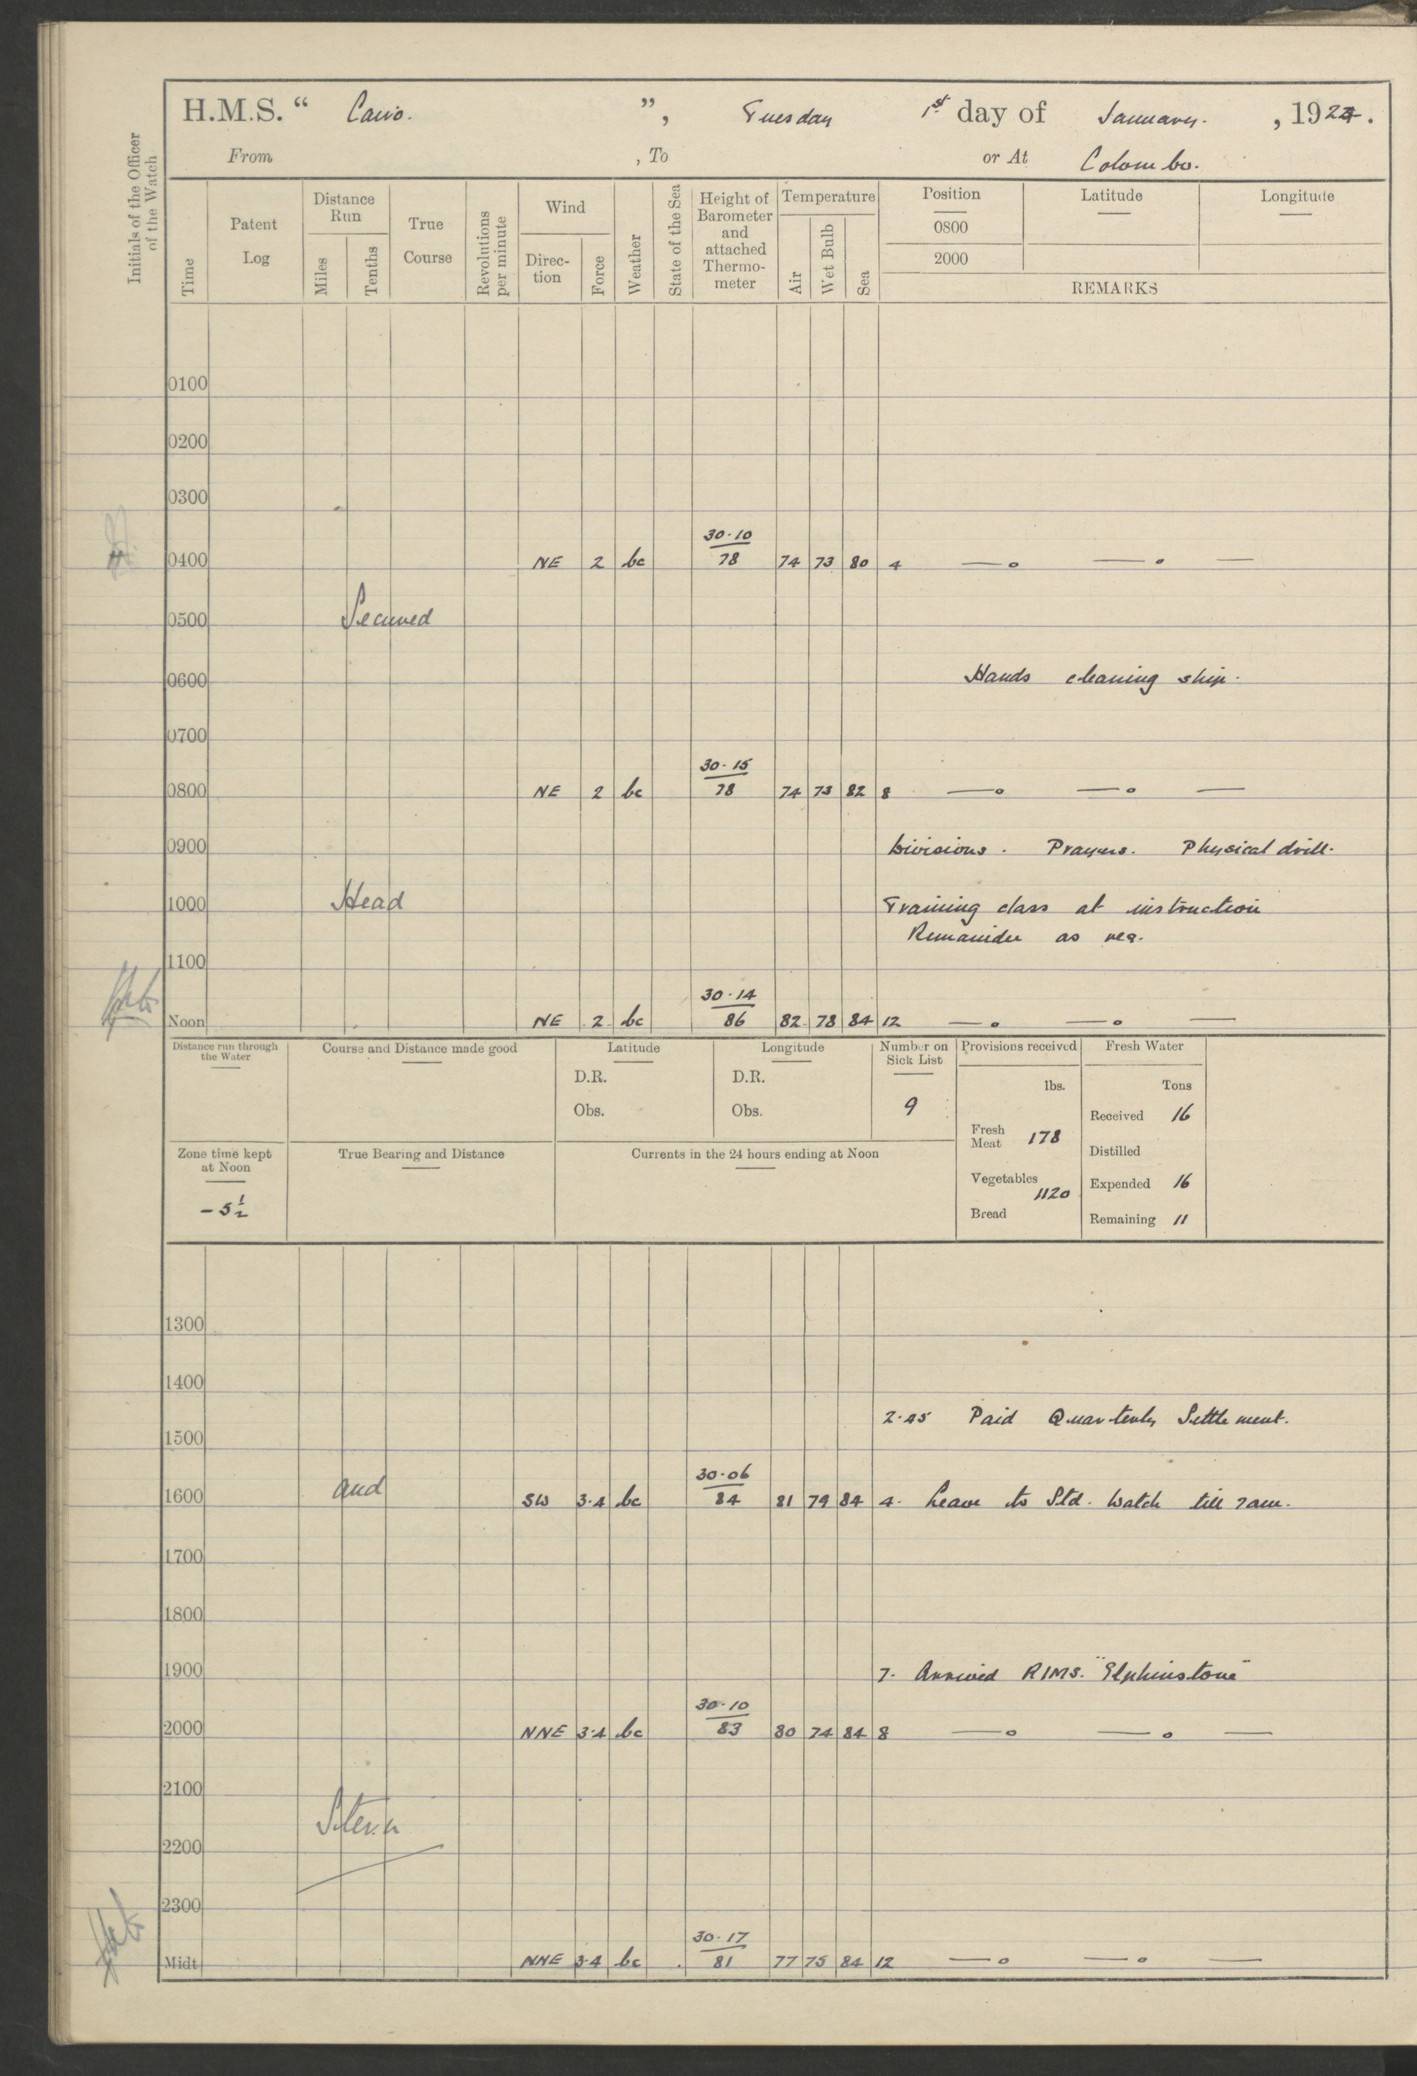 H.M.S. “ Cairo. ”, Tuesday 1st day of January. , 1924.
From , To or At Colombo.
Initials of the Officer of the Watch
Time
Patent Log
Distance Run
Miles
Tenths
True Course
Revolutions per minute
Wind
Direc-tion
Force
Weather
State of the Sea
Height of Barometer and attached Thermo-meter
Temperature
Air
Wet Bulb
Sea
Position
0800
2000
Latitude
Longitude
REMARKS
0100
0200
0300
30·10
0400 NE 2 bc 78 74 73 80 4 — o — o —
Secured
0500
0600 Hands cleaning ship.
0700
30·15
0800 NE 2 bc 78 74 73 82 8 — o — o —
0900 Divisions. Prayers. Physical drill.
Head
1000 Training class at instruction
Remainder as req.
1100
30·14
Noon NE 2 bc 86 82 78 84 12 — o — o —
Distance run through the Water
Course and Distance made good
Latitude
D.R.
Obs.
Longitude
D.R.
Obs.
Number on Sick List
9
Provisions received
lbs.
Fresh Meat 178
Vegetables 1120
Bread
Fresh Water
Tons
Received 16
Distilled
Expended 16
Remaining 11
Zone time kept at Noon
– 5½
True Bearing and Distance
Currents in the 24 hours ending at Noon
1300
1400
2·45 Paid Quarterly Settlement.
1500
30·06
and
1600 SW 3·4 bc 84 81 79 84 4. Leave to Std. Watch till 7am.
1700
1800
1900 7. Arrived RIMS. "Elphinstone"
30·10
2000 NNE 3·4 bc 83 80 74 84 8 — o — o —
2100
Stern
2200
2300
30·17
Midt NNE 3·4 bc 81 77 75 84 12 — o — o —